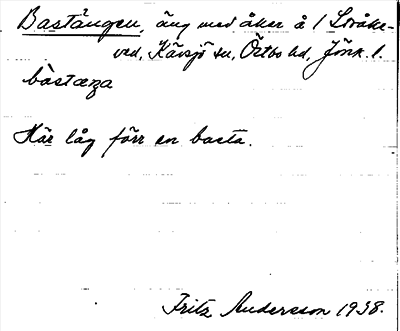 Bastängen, äng med åker å 1 Stråke-
ved, Kävsjö sn, Östbo hd, Jönk. l.
bàstæŋa
Här låg förr en basta.
Fritz Andersson 1938.